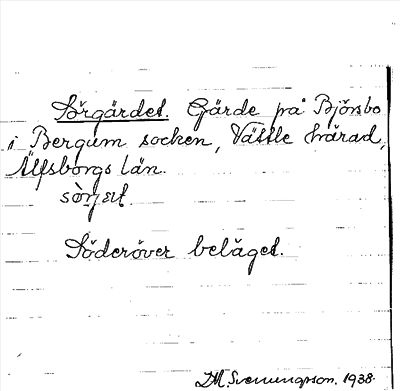 Sörgärdet. Gärde på Björsbo
i Bergum socken, Vättle härad,
Älfsborgs län.
Söderöver beläget.
DM Svenungsson. 1938.